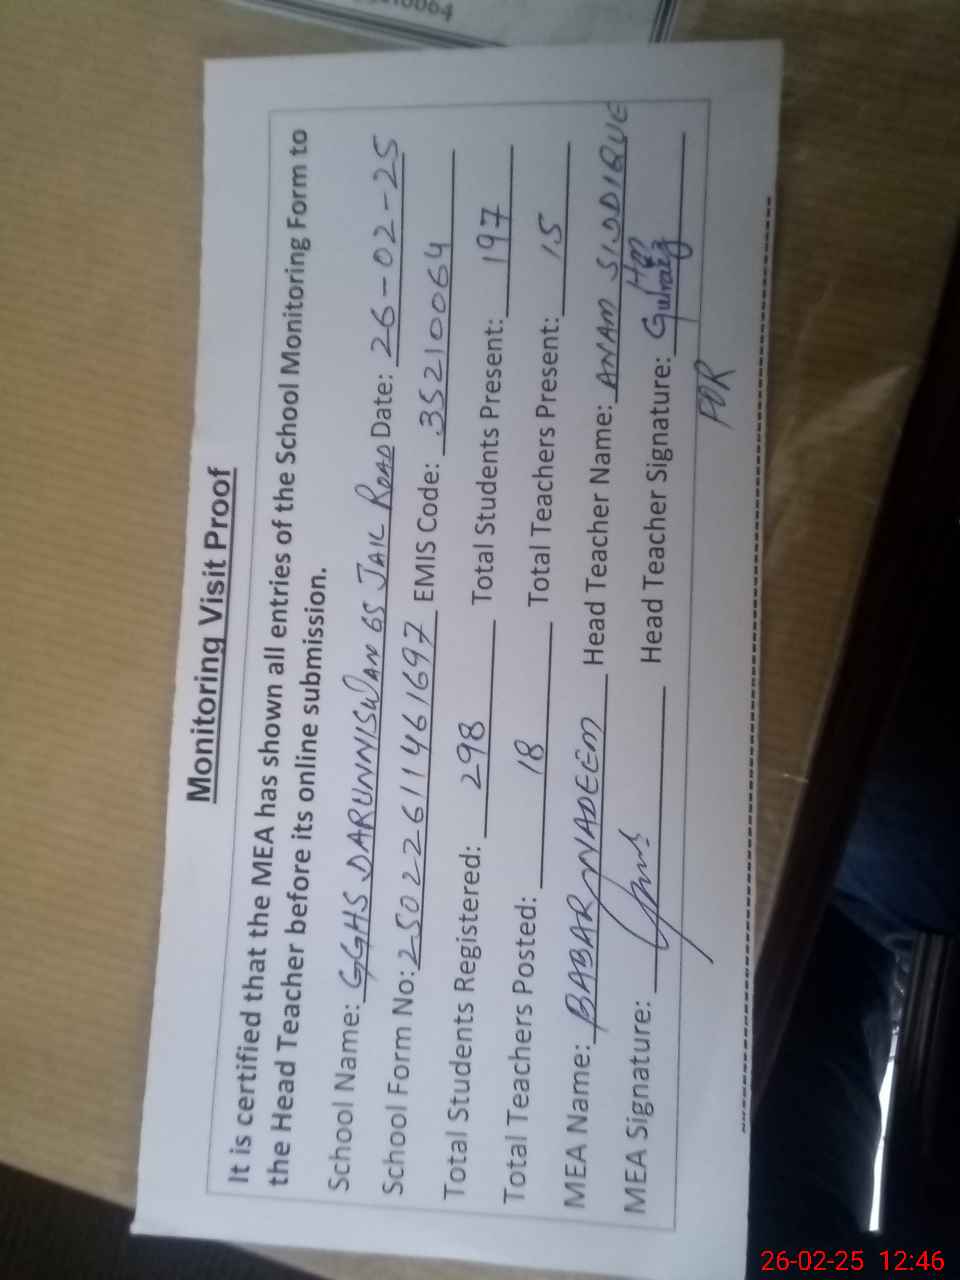 10064
Monitoring Visit Proof
It is certified that the MEA has shown all entries of the School Monitoring Form to
the Head Teacher before its online submission.
School Name: GGHS DARUNNISWAN 65 JAIL ROAD Date: 26-02-25
School Form No: 2502261146 1697 EMIS Code: 35210064
Total Students Registered: 298 Total Students Present: 197
Total Teachers Posted: 18 Total Teachers Present: 15
MEA Name: BABAR NADEEM Head Teacher Name: ANAM SIDDIQUE
MEA Signature: Head Teacher Signature: Gulraiz
FOR
26-02-25 12:46